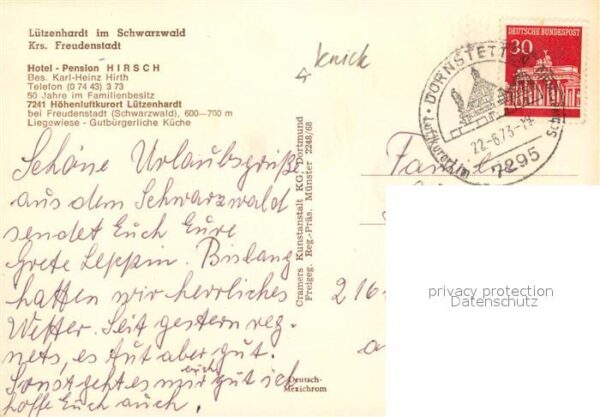 Lützenhardt im Schwarzwald
Krs. Freudenstadt
Hotel - Pension HIRSCH
Bes. Karl-Heinz Hirth
Telefon (0 74 43) 3 73
50 Jahre im Familienbesitz
7241 Höhenluftkurort Lützenhardt
bei Freudenstadt (Schwarzwald), 600—700 m
Liegewiese - Gutbürgerliche Küche
knick
DEUTSCHE BUNDESPOST
30
DORNSTETTEN
22-6.73-19
7295
Schöne Urlaubsgrüße
aus dem Schwarzwald
sendet Euch Eure
Grete Leppin. Bislang
hatten wir herrliches
Wetter. Seit gestern reg-
nets, es tut aber gut.
Sonst geht es mir auch gut ich
hoffe Euch auch.
Cramers Kunstanstalt KG, Dortmund
Freigeg. Reg.-Präs. Münster 2249/68
Familie
216
privacy protection
Datenschutz
Deutsch-
Mexichrom